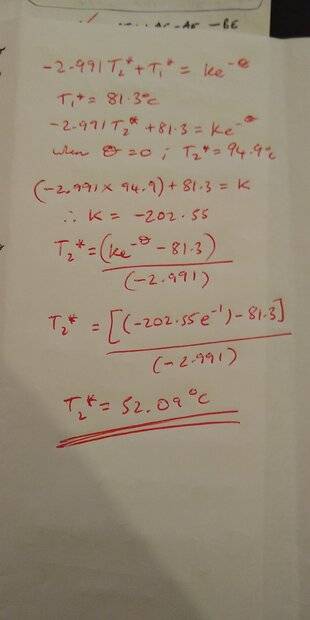 -AE - BE
-2.991T₂* + T₁* = ke^-θ
T₁* = 81.3°c
-2.991T₂* + 81.3 = ke^-θ
when θ=0 ; T₂* = 94.9°c
(-2.991 x 94.9) + 81.3 = K
∴ K = -202.55
T₂* = (ke^-θ - 81.3)
(-2.991)
T₂* = [(-202.55e^-1) - 81.3]
(-2.991)
T₂* = 52.09°c